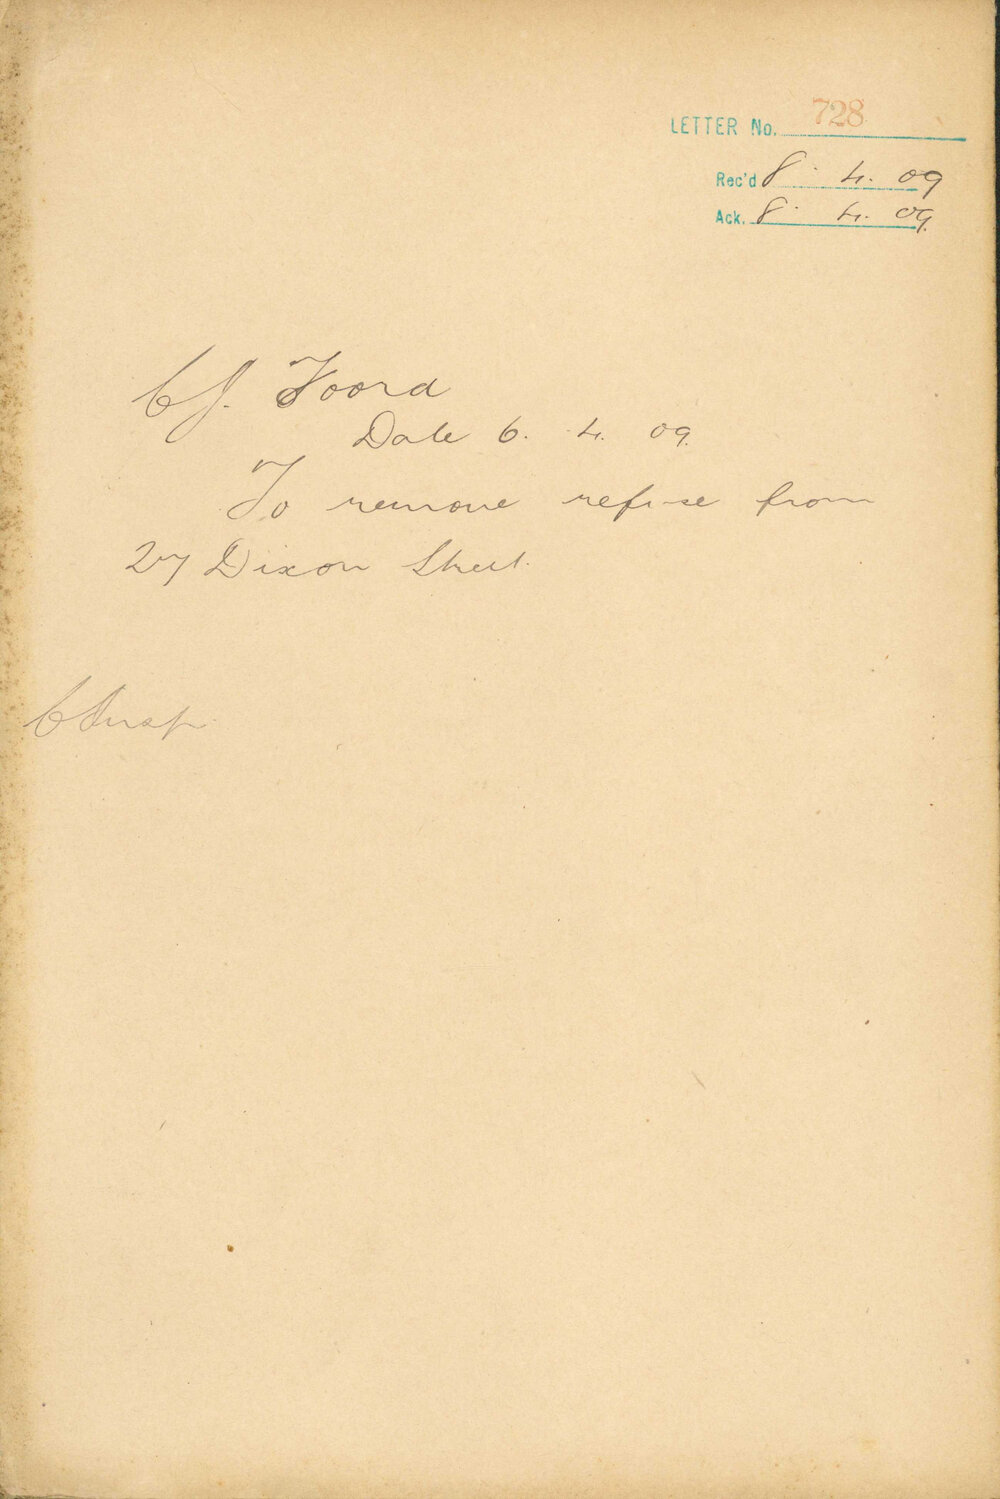 LETTER No. 728
Rec'd 8. 4. 09
Ack. 8. 4. 09.
C J. Foord
Date 6. 4. 09.
To remove refuse from
27 Dixon Street.
C Insp